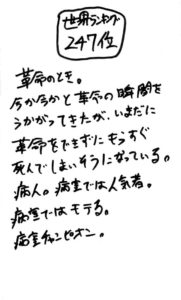 世界ランキング
247位
革命のとき。
今か今かと革命の瞬間を
うかがってきたが、いまだに
革命をできずにもうすぐ
死んでしまいそうになっている。
病人。病室では人気者。
病室ではモテる。
病室チャンピオン。